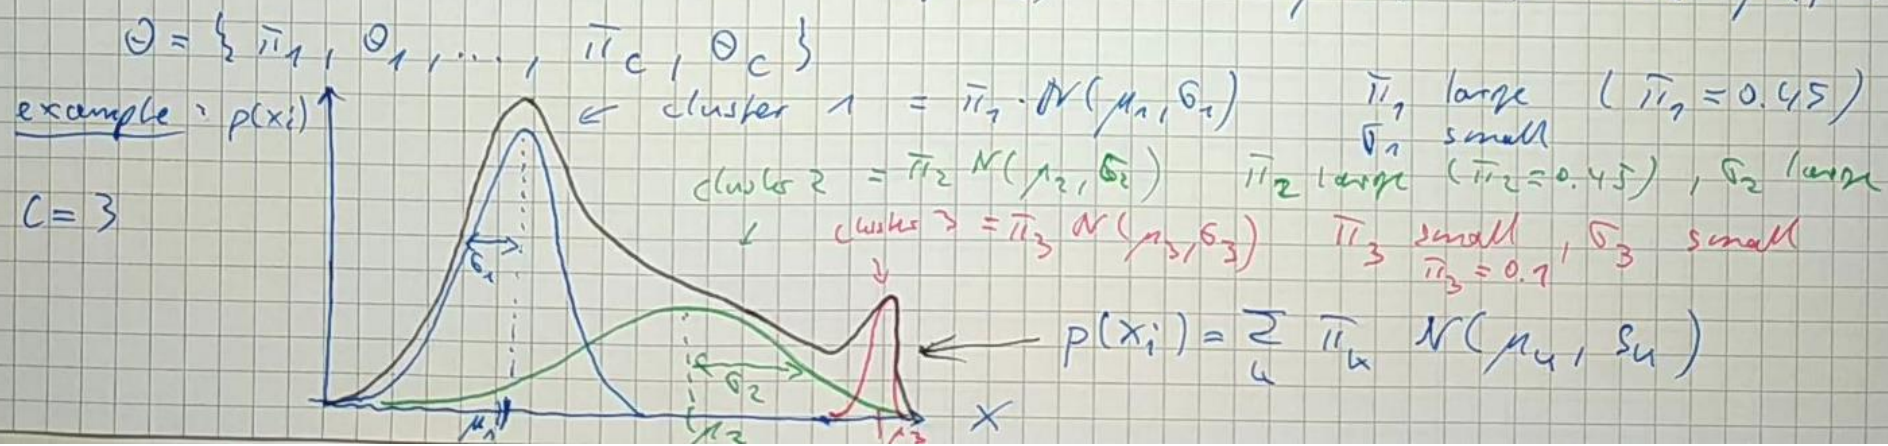 Θ = { π₁, Θ₁, ..., π_C, Θ_C }
example: p(xi) ← cluster 1 = π₁ · N(μ₁, σ₁) π₁ large (π₁ = 0.45)
σ₁ small
cluster 2 = π₂ N(μ₂, σ₂) π₂ large (π₂ = 0.45), σ₂ large
C = 3
cluster 3 = π₃ N(μ₃, σ₃) π₃ small, σ₃ small
π₃ = 0.1
σ₁
p(xi) = Σ_k π_k N(μ_k, S_k)
σ₂
μ₁ μ₂ μ₃ X